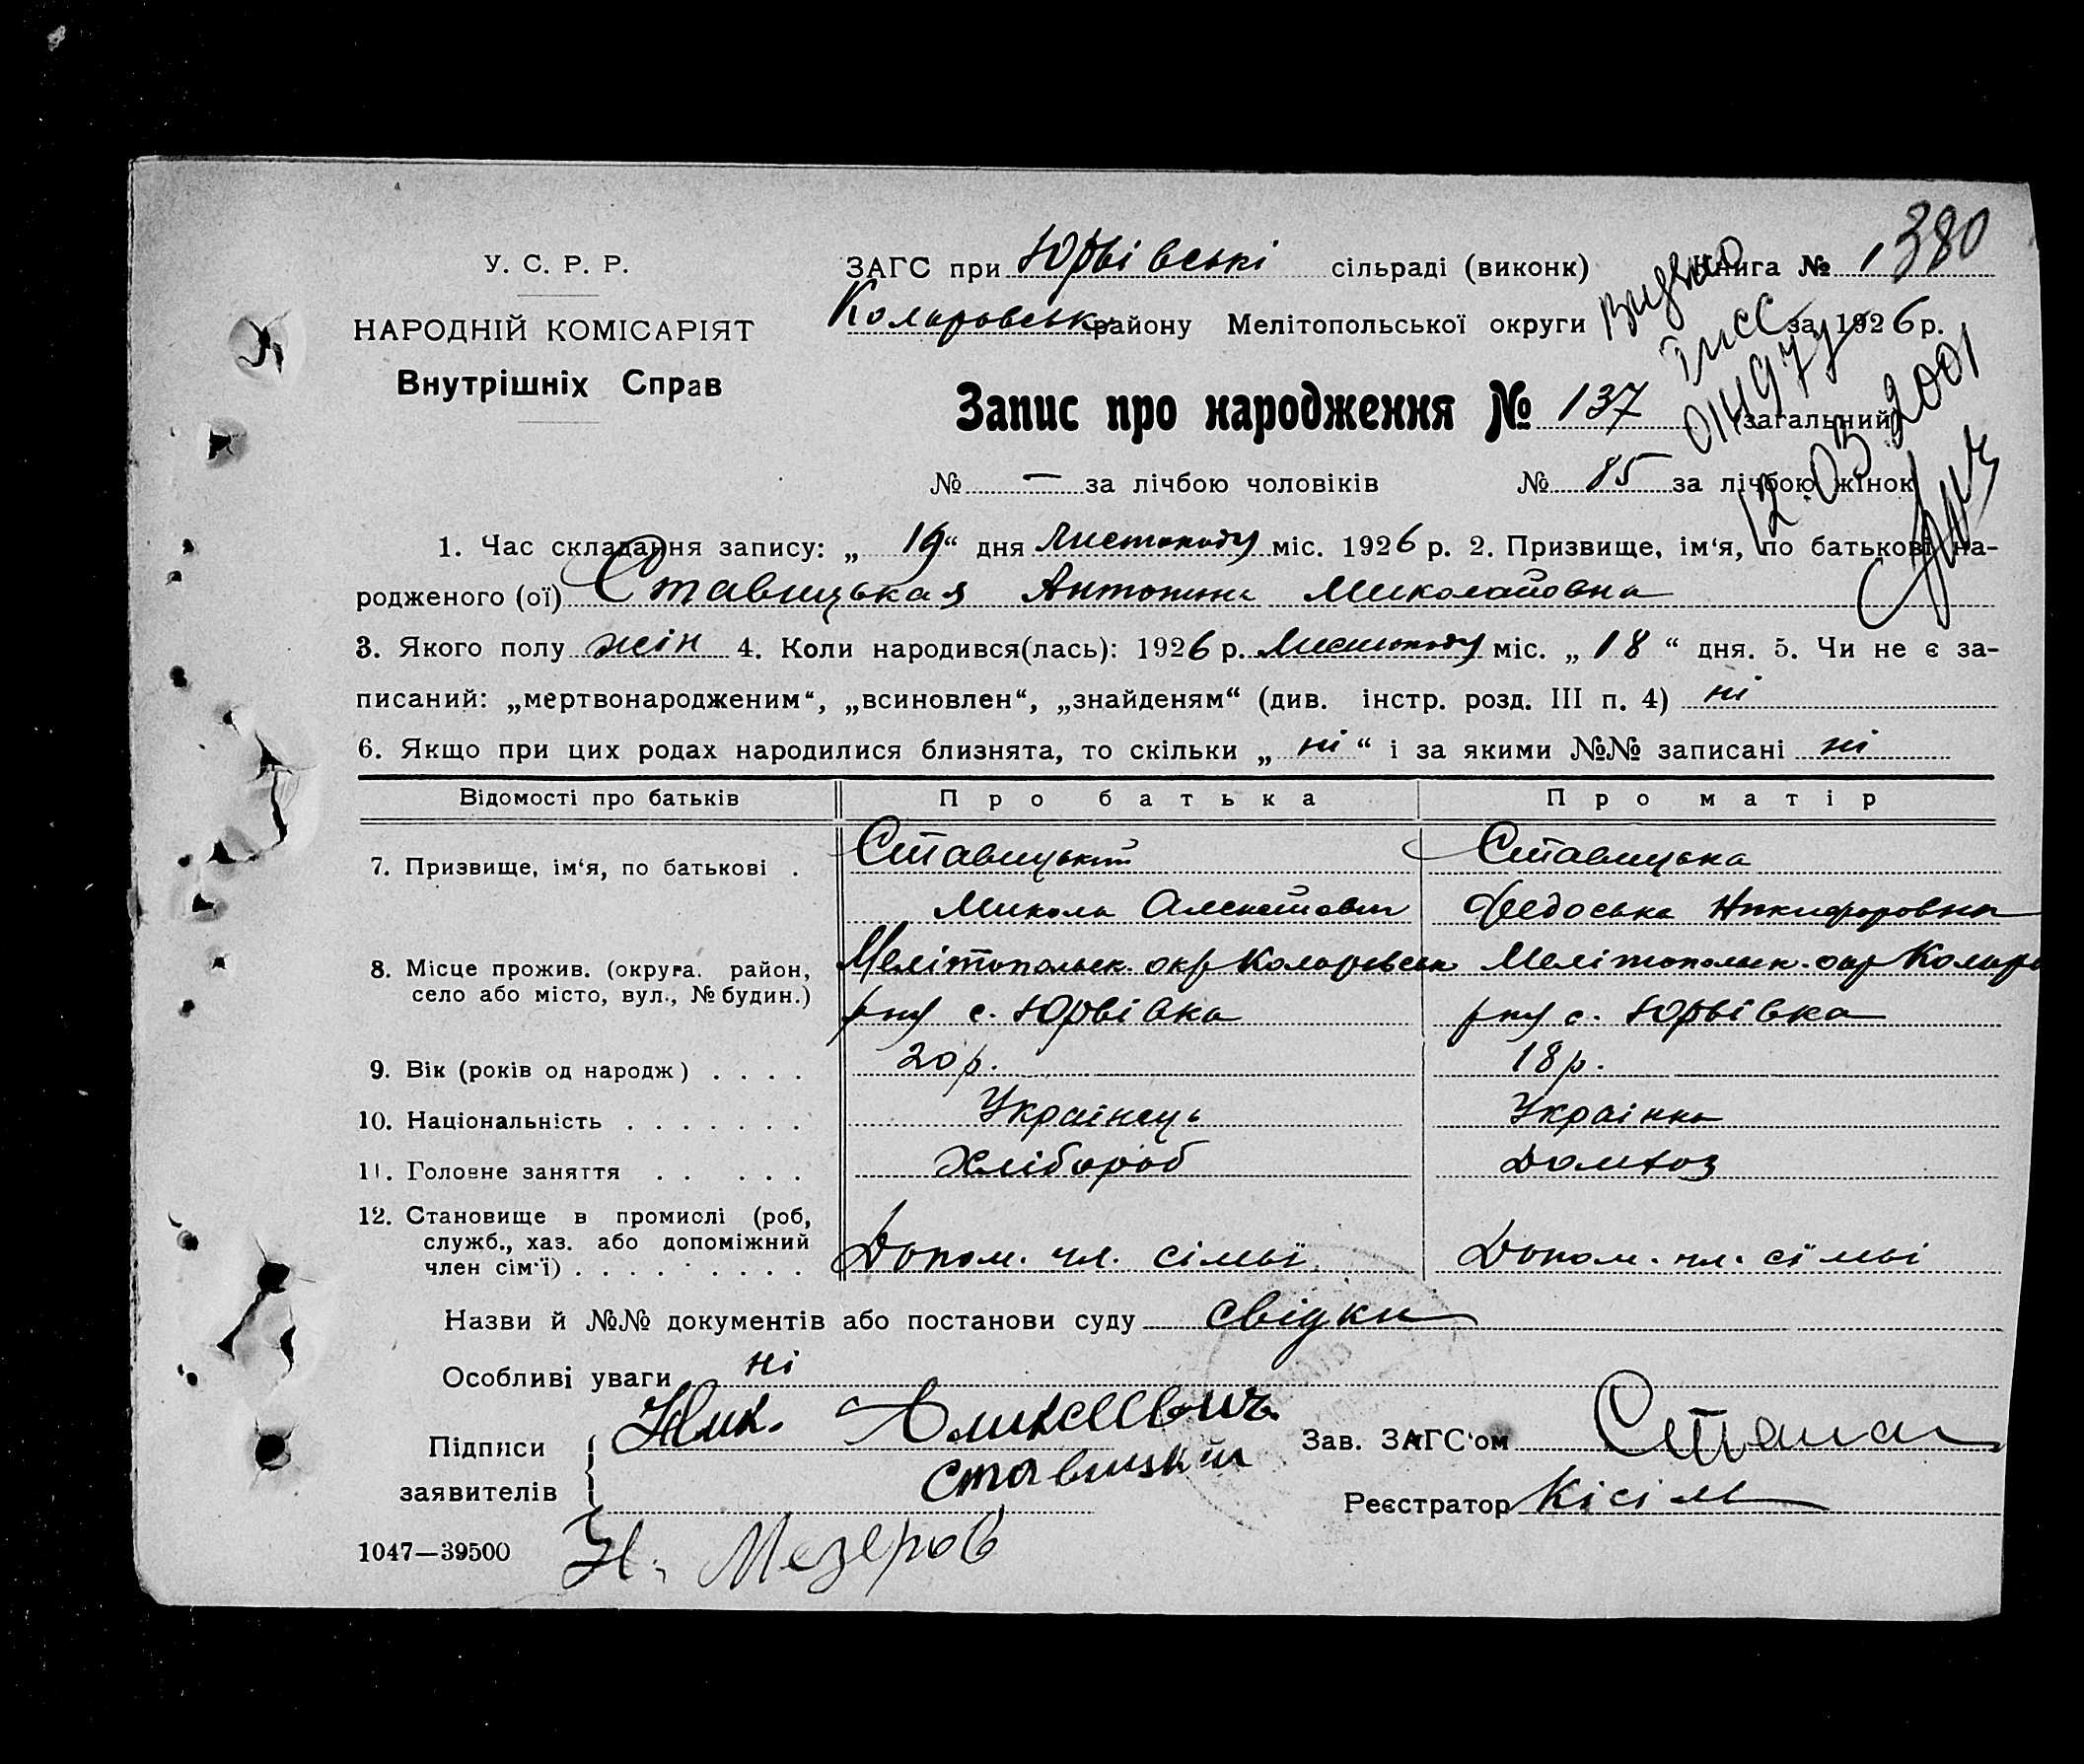 380
У. С. Р. Р.
НАРОДНІЙ КОМІСАРІЯТ
Внутрішніх Справ
ЗАГС при Юрвівські сільраді (виконк) Книга № 1
Коларовськ району Мелітопольської округи за 1926 р.
Видано
014977
12.03.2001
Запис про народження № 137 (загальний)
№ — за лічбою чоловіків № 85 за лічбою жінок
1. Час складання запису: „ 19 “ дня Листопаду міс. 1926 р. 2. Призвище, ім‘я, по батькові на-
родженого (ої) Ставицькая Антонина Миколайовна
3. Якого полу жін 4. Коли народився(лась): 1926 р. Листопаду міс. „ 18 “ дня. 5. Чи не є за-
писаний: „мертвонародженим“, „всиновлен“, „знайденям“ (див. інстр. розд. III п. 4) ні
6. Якщо при цих родах народилися близнята, то скільки „ ні “ і за якими №№ записані ні
Відомості про батьків Про батька Про матір
7. Призвище, ім‘я, по батькові . Ставицький Ставицька
Микола Федоська Никифоровна
8. Місце прожив. (округа. район, Мелітопольск. окр Коларовськ Мелітопольск. окр Коларо
село або місто, вул., № будин.) рну с. Юрвівка рну с. Юрвівка
9. Вік (років од народж) . . . . 20 р. 18 р.
10. Національність . . . . . . . Українець Українка
11. Головне заняття . . . . . Хлібороб Домхоз
12. Становище в промислі (роб,
служб., хаз. або допоміжний
член сім‘ї) . . . . . . . . . Допом. чл. сімьї Допом. чл. сімьі
Назви й №№ документів або постанови суду свідки
Особливі уваги ні
Підписи
заявителів
Ник. Аликсеевичь
Ставицкий
Н. Мезеров
Зав. ЗАГС‘ом
Реєстратор Кісіл
1047—39500